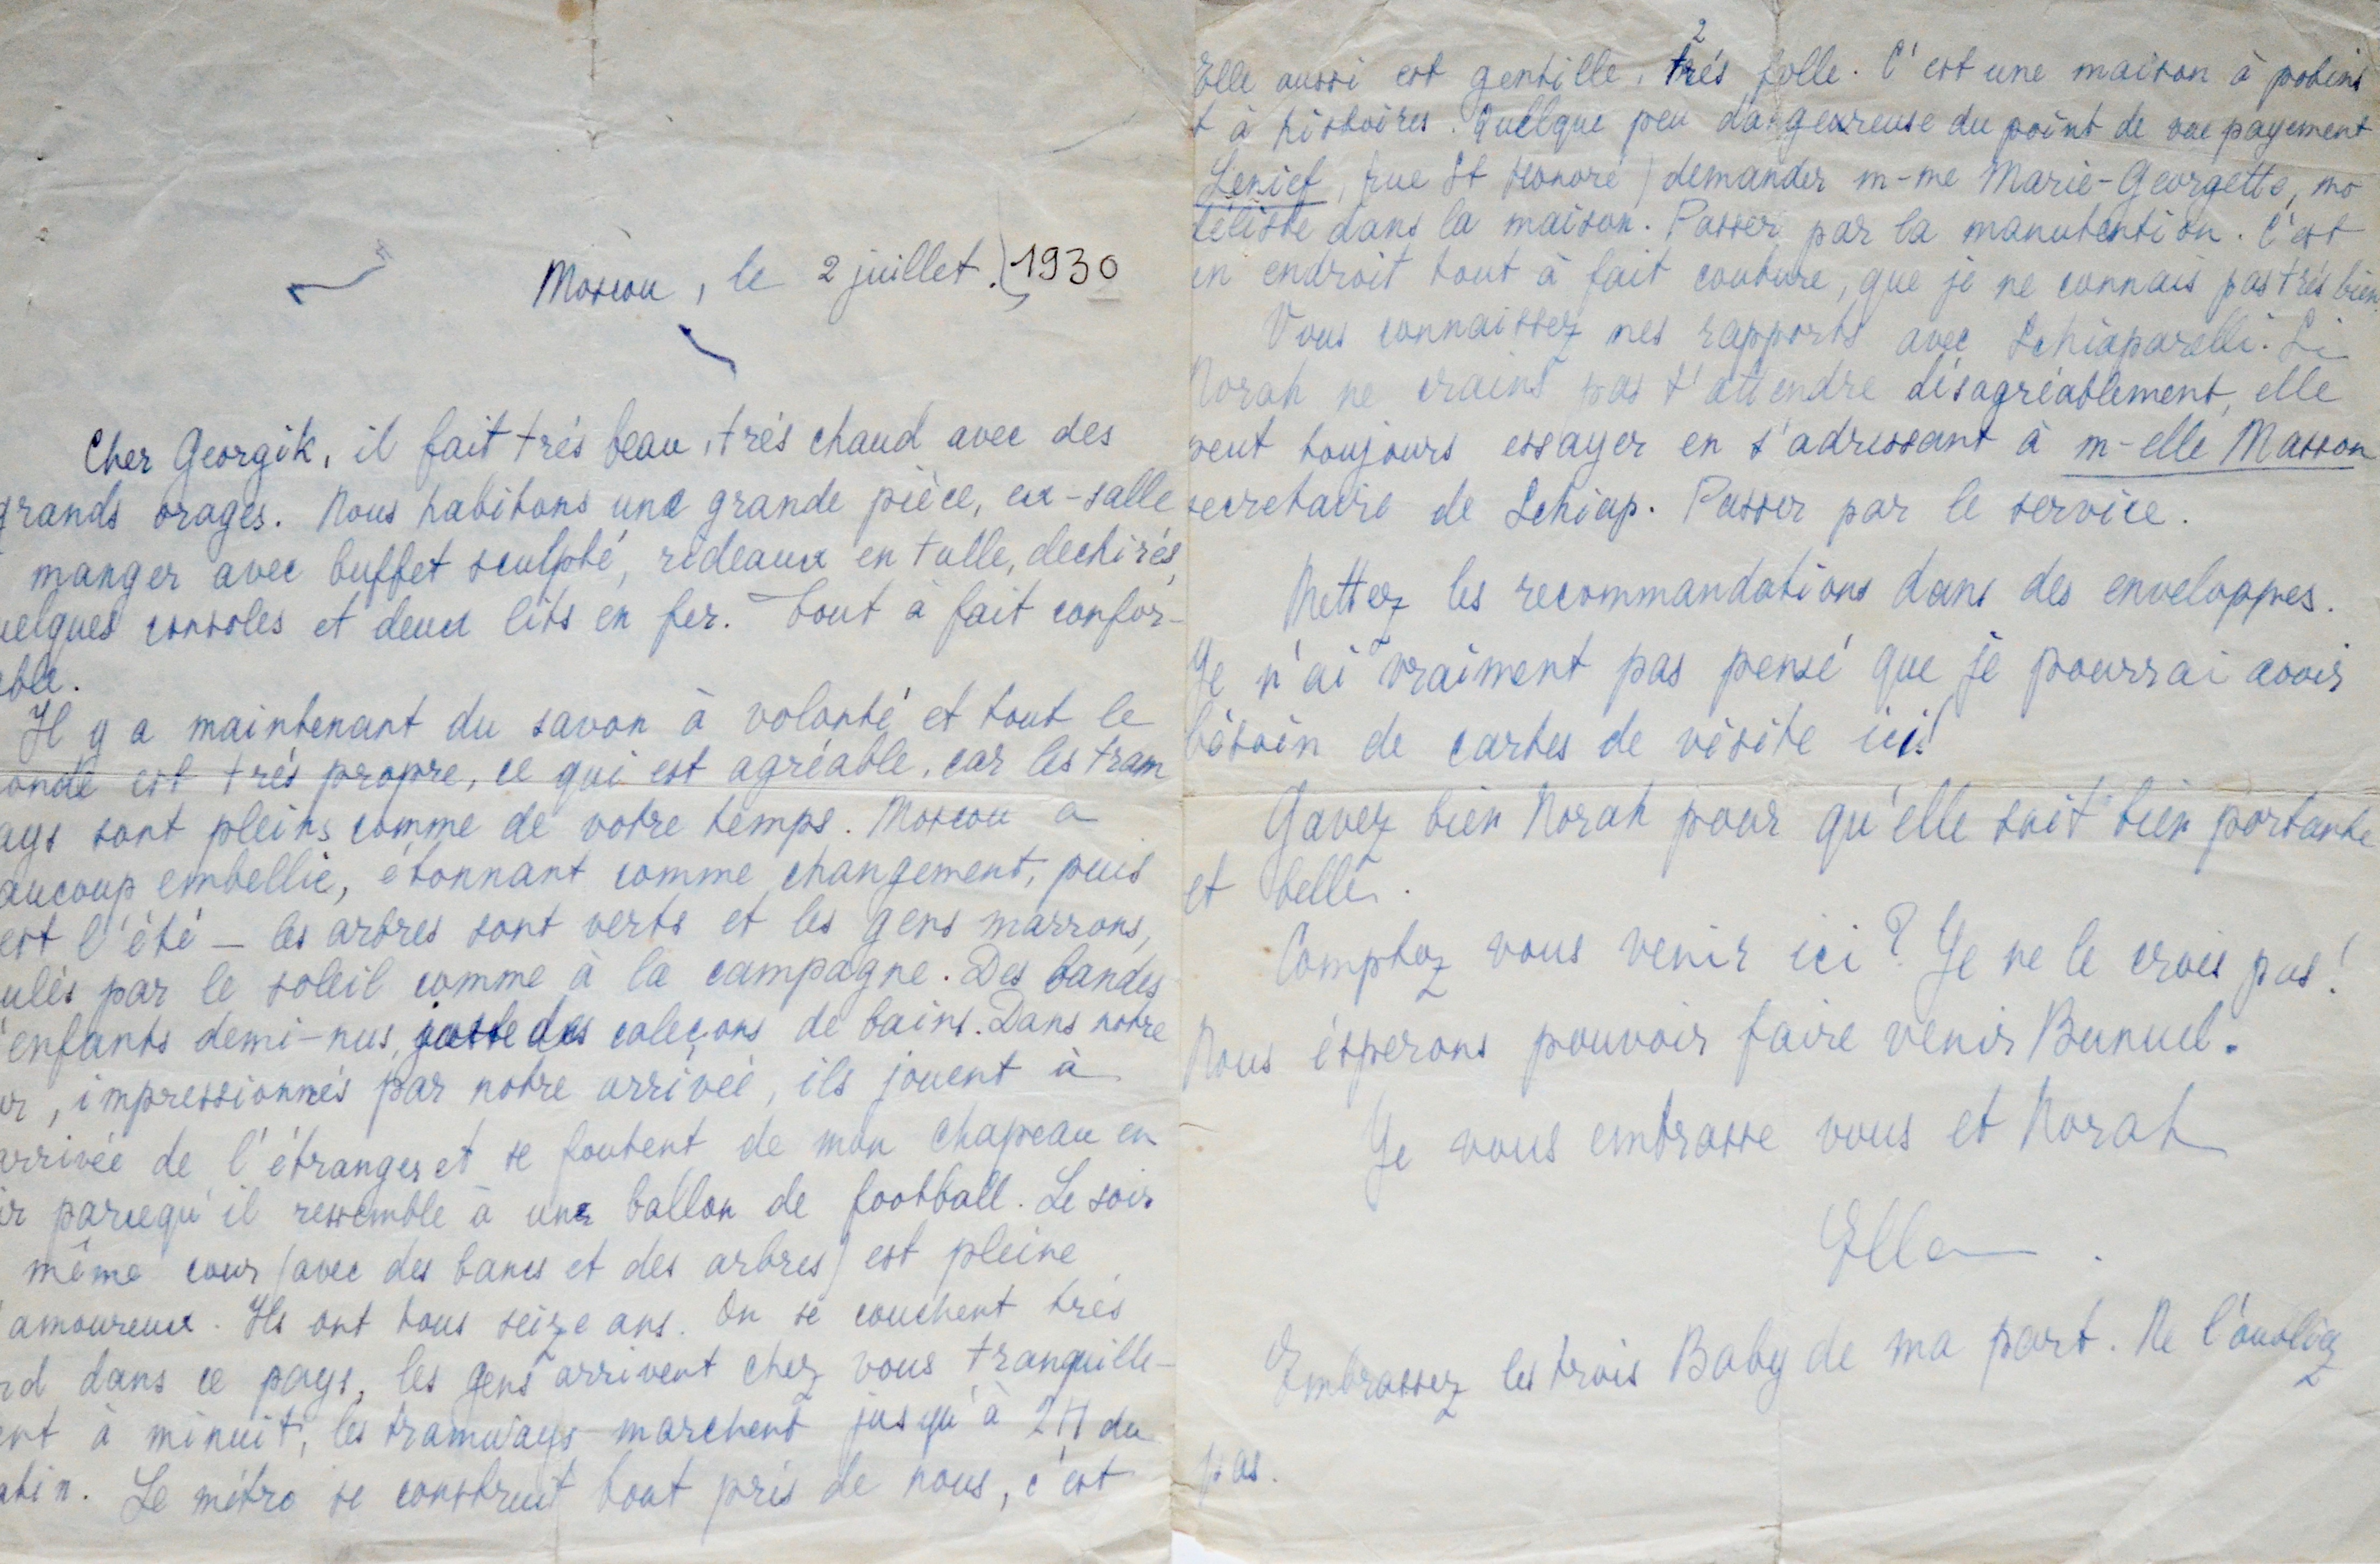 Moscou, le 2 juillet. (1930
Cher Georgik, il fait trés beau, trés chaud avec des
grands orages. Nous habitons une grande pièce, ex-salle
manger avec buffet sculpté, rideaux en tulle, dechirés,
uelques consoles et deux lits en fer. Tout à fait confor-
able.
Il y a maintenant du savon à volonté et tout le
onde est trés propre, ce qui est agréable, car les tram
ays sont pleins comme de votre temps. Moscou a
aucoup embellie, étonnant comme changement, puis
est l'été — les arbres sont verts et les gens marrons,
ulés par le soleil comme à la campagne. Des bandes
'enfants demi-nus, juste des caleçons de bains. Dans notre
ur, impressionnés par notre arrivée, ils jouent à
arrivée de l'étranger et se foutent de mon chapeau en
ir parcequ'il ressemble à une ballon de football. Le soir
même cour (avec des bancs et des arbres) est pleine
amoureux. Ils ont tous seize ans. On se couchent trés
rd dans ce pays, les gens arrivent chez vous tranquille-
ent à minuit, les tramways marchent jusqu'à 2H du
atin. Le métro se construit tout prés de nous, c'est
2
Elle aussi est gentille, trés folle. C'est une maison à potins
t à histoires. Quelque peu dangereuse du point de vue payement
Lenief, (rue St Honoré) demander m-me Marie-Georgette, mo
déliste dans la maison. Passer par la manutention. C'est
un endroit tout à fait couture, que je ne connais pas trés bien.
Vous connaissez mes rapports avec Schiaparelli. Si
Norah ne craint pas s'attendre désagréablement, elle
peut toujours essayer en s'adressant à m-elle Masson
secretaire de Schiap. Passer par le service.
Mettez les recommandations dans des enveloppes.
Je n'ai vraiment pas pensé que je pourrai avoir
bésoin de cartes de visite ici!
Gavez bien Norah pour qu'elle soit bien portante
et belle.
Comptez vous venir ici? Je ne le crois pas!
Nous ésperons pouvoir faire venir Bunuel.
Je vous embrasse vous et Norah
Ella.
Embrassez les trois Baby de ma part. Ne l'oubliez
pas.